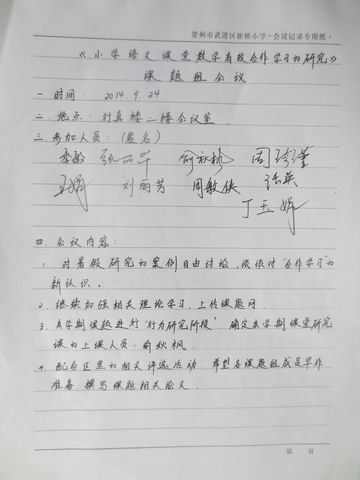 常州市武进区崔桥小学·会议记录专用纸·
《小学语文课堂教学有效合作学习的研究》
课题组会议
一.时间: 2014.9.24
二.地点: 行真楼二楼会议室.
三.参加人员: (签名)
张丽华 俞秋枫
刘丽芳 周敏侠
丁玉娟
四.会议内容:
1. 对暑假研究的案例自由讨论,谈谈对“合作学习”的
新认识.
2. 继续加强相关理论学习,上传课题网
3. 本学期课题进行“行为研究阶段”.确定本学期课堂研究
课的上课人员:俞秋枫.
4. 配合区里的相关评选活动.希望各课题组成员早作
准备.撰写课题相关论文.
第 页